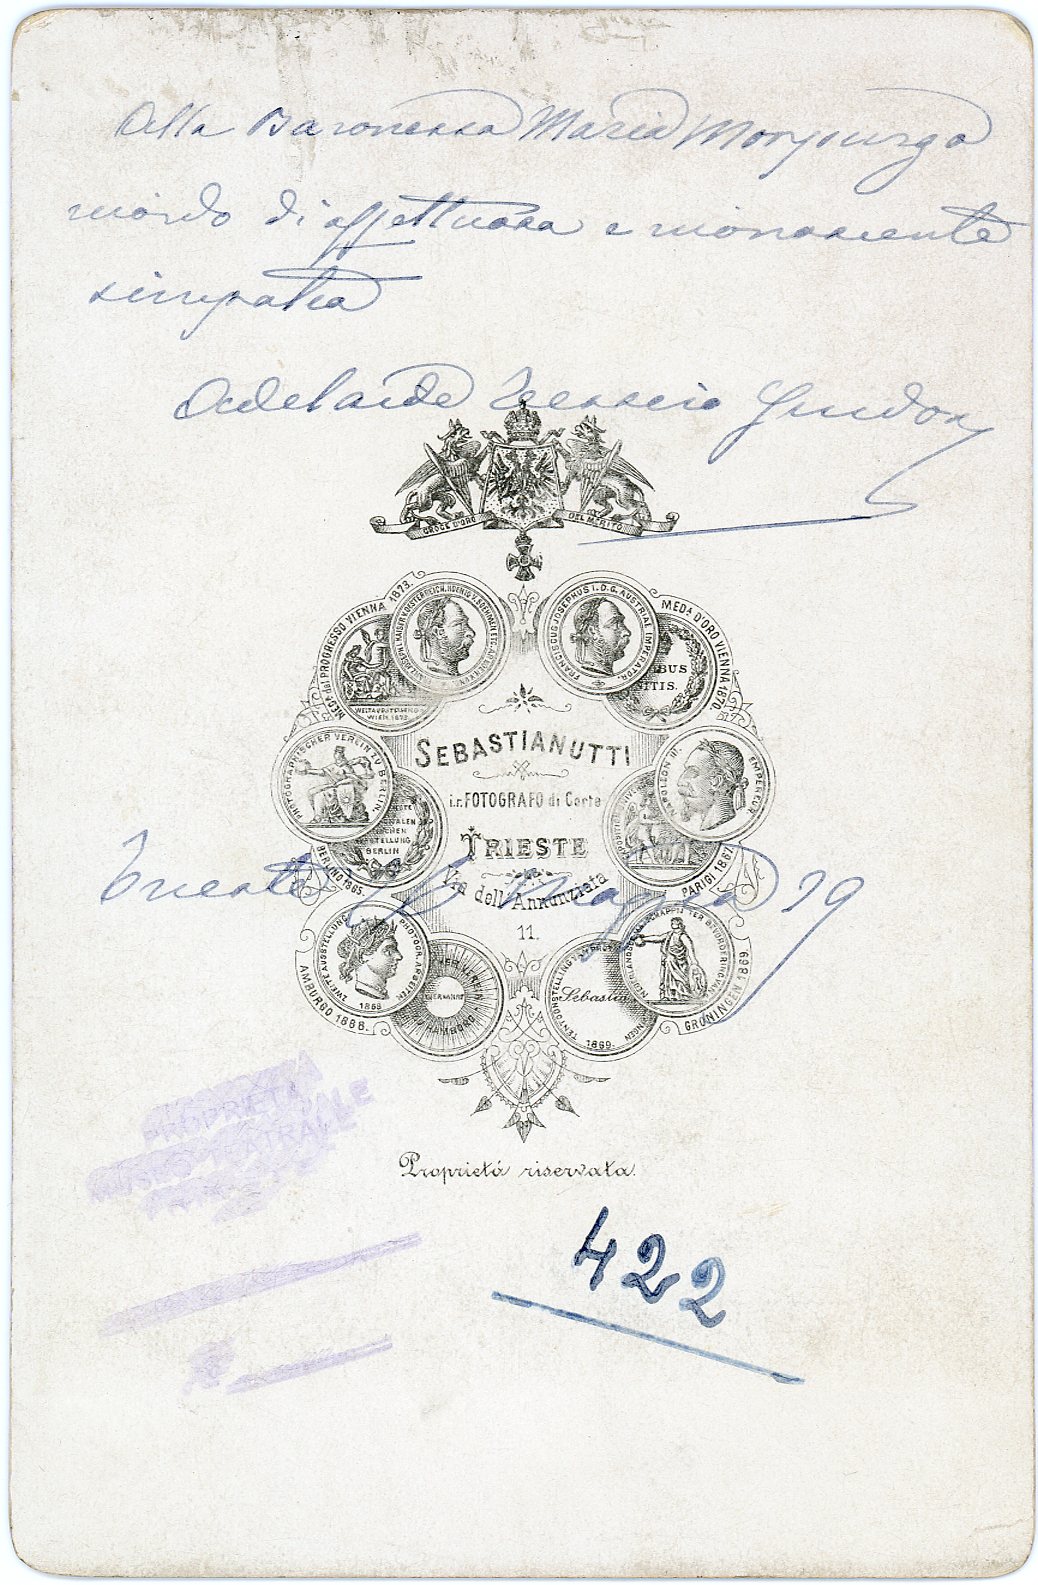 Alla Baronessa Maria Morpurgo
ricordo di affettuosa e riconoscente
simpatia
Adelaide Tessero Guidone
CROCE D'ORO DEL MERITO
MEDa. del PROGRESSO VIENNA 1873.
MEDa. D'ORO VIENNA 1870
FRANCISCUS JOSEPHUS I.D.G. AUSTRIAE IMPERATOR.
WELTAUSSTELLUNG
WIEN 1873
SEBASTIANUTTI
i.r. FOTOGRAFO di Corte
TRIESTE
Via dell'Annunziata
11.
PHOTOGRAPHISCHER VEREIN ZU BERLIN.
BERLIN
BERLINO 1865.
NAPOLEON III. EMPEREUR
PARIGI 1867.
Trieste Marzo 79
ZWEITE AUSSTELLUNG PHOTOGR. ARBEITEN
1868
HAMBURG
AMBURGO 1868.
Sebastia
1869.
GRONINGEN 1869
Proprietá riservata.
PROPRIETÀ
MUSEO TEATRALE
422